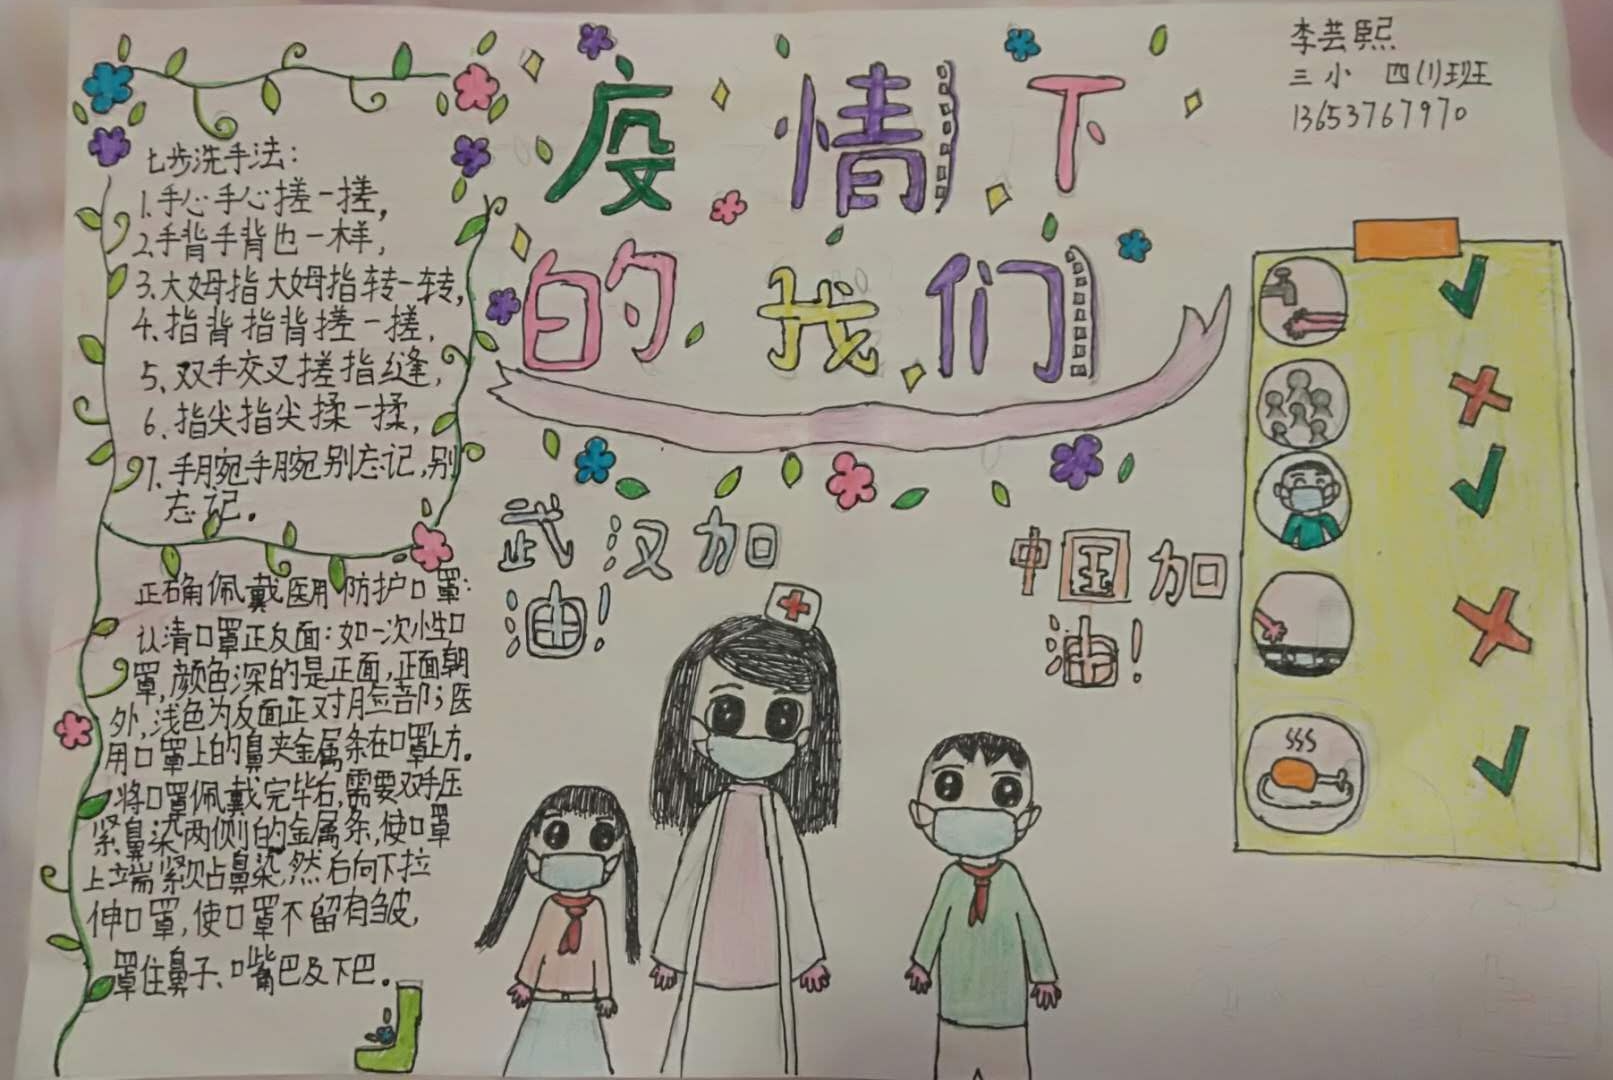 李芸熙
三小 四(1)班
13653767970
疫情下
的我们
七步洗手法：
1、手心手心搓一搓，
2、手背手背也一样，
3、大姆指大姆指转一转，
4、指背指背搓一搓，
5、双手交叉搓指缝，
6、指尖指尖揉一揉，
7、手腕手腕别忘记，别
忘记。
武汉加
油！
中国加
油！
正确佩戴医用防护口罩：
认清口罩正反面：如一次性口
罩，颜色深的是正面，正面朝
外，浅色为反面正对脸部；医
用口罩上的鼻夹金属条在口罩上方。
将口罩佩戴完毕后，需要双手压
紧鼻染两侧的金属条，使口罩
上端紧贴鼻染，然后向下拉
伸口罩，使口罩不留有皱，
罩住鼻子、口嘴巴及下巴。